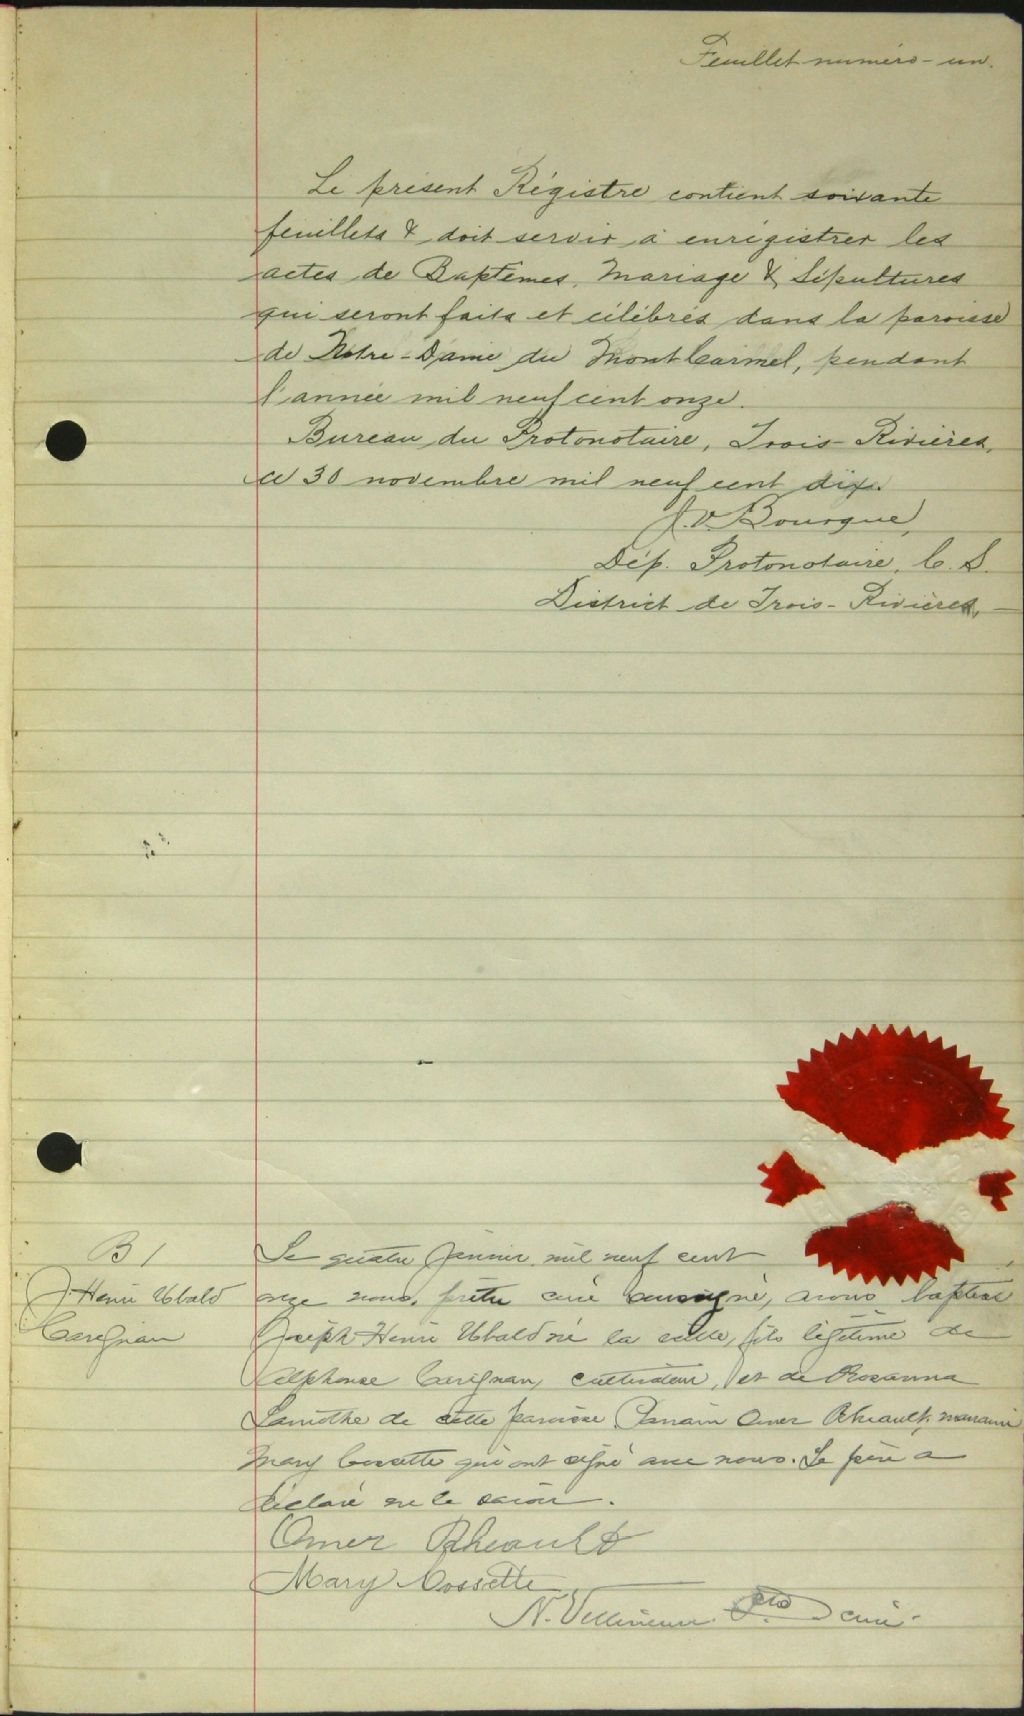 Feuillet numéro - un.
Le présent Régistre contient soixante
feuillets & doit servir à enrégistrer les
actes de Baptêmes, Mariage & Sépultures
qui seront faits et célébrés dans la paroisse
de Notre-Dame du Mont Carmel, pendant
l'année mil neuf cent onze.
Bureau du Protonotaire, Trois-Rivières,
ce 30 novembre mil neuf cent dix.
J. V. Bourque,
Dép. Protonotaire, C. S.
District de Trois-Rivières,
B 1
J. Henri Ubald
Carignan
Le quatre janvier mil neuf cent
onze nous, prêtre curé soussigné, avons baptisé
Joseph Henri Ubald né la veille, fils légitime de
Alphonse Carignan, cultivateur, et de Rosanna
Lamothe de cette paroisse Parrain Omer Rheault, marraine
Mary Cossette qui ont signé avec nous. Le père a
déclaré ne le savoir.
Omer Rheault
Mary Cossette
N. Villeneuve Ptre curé.